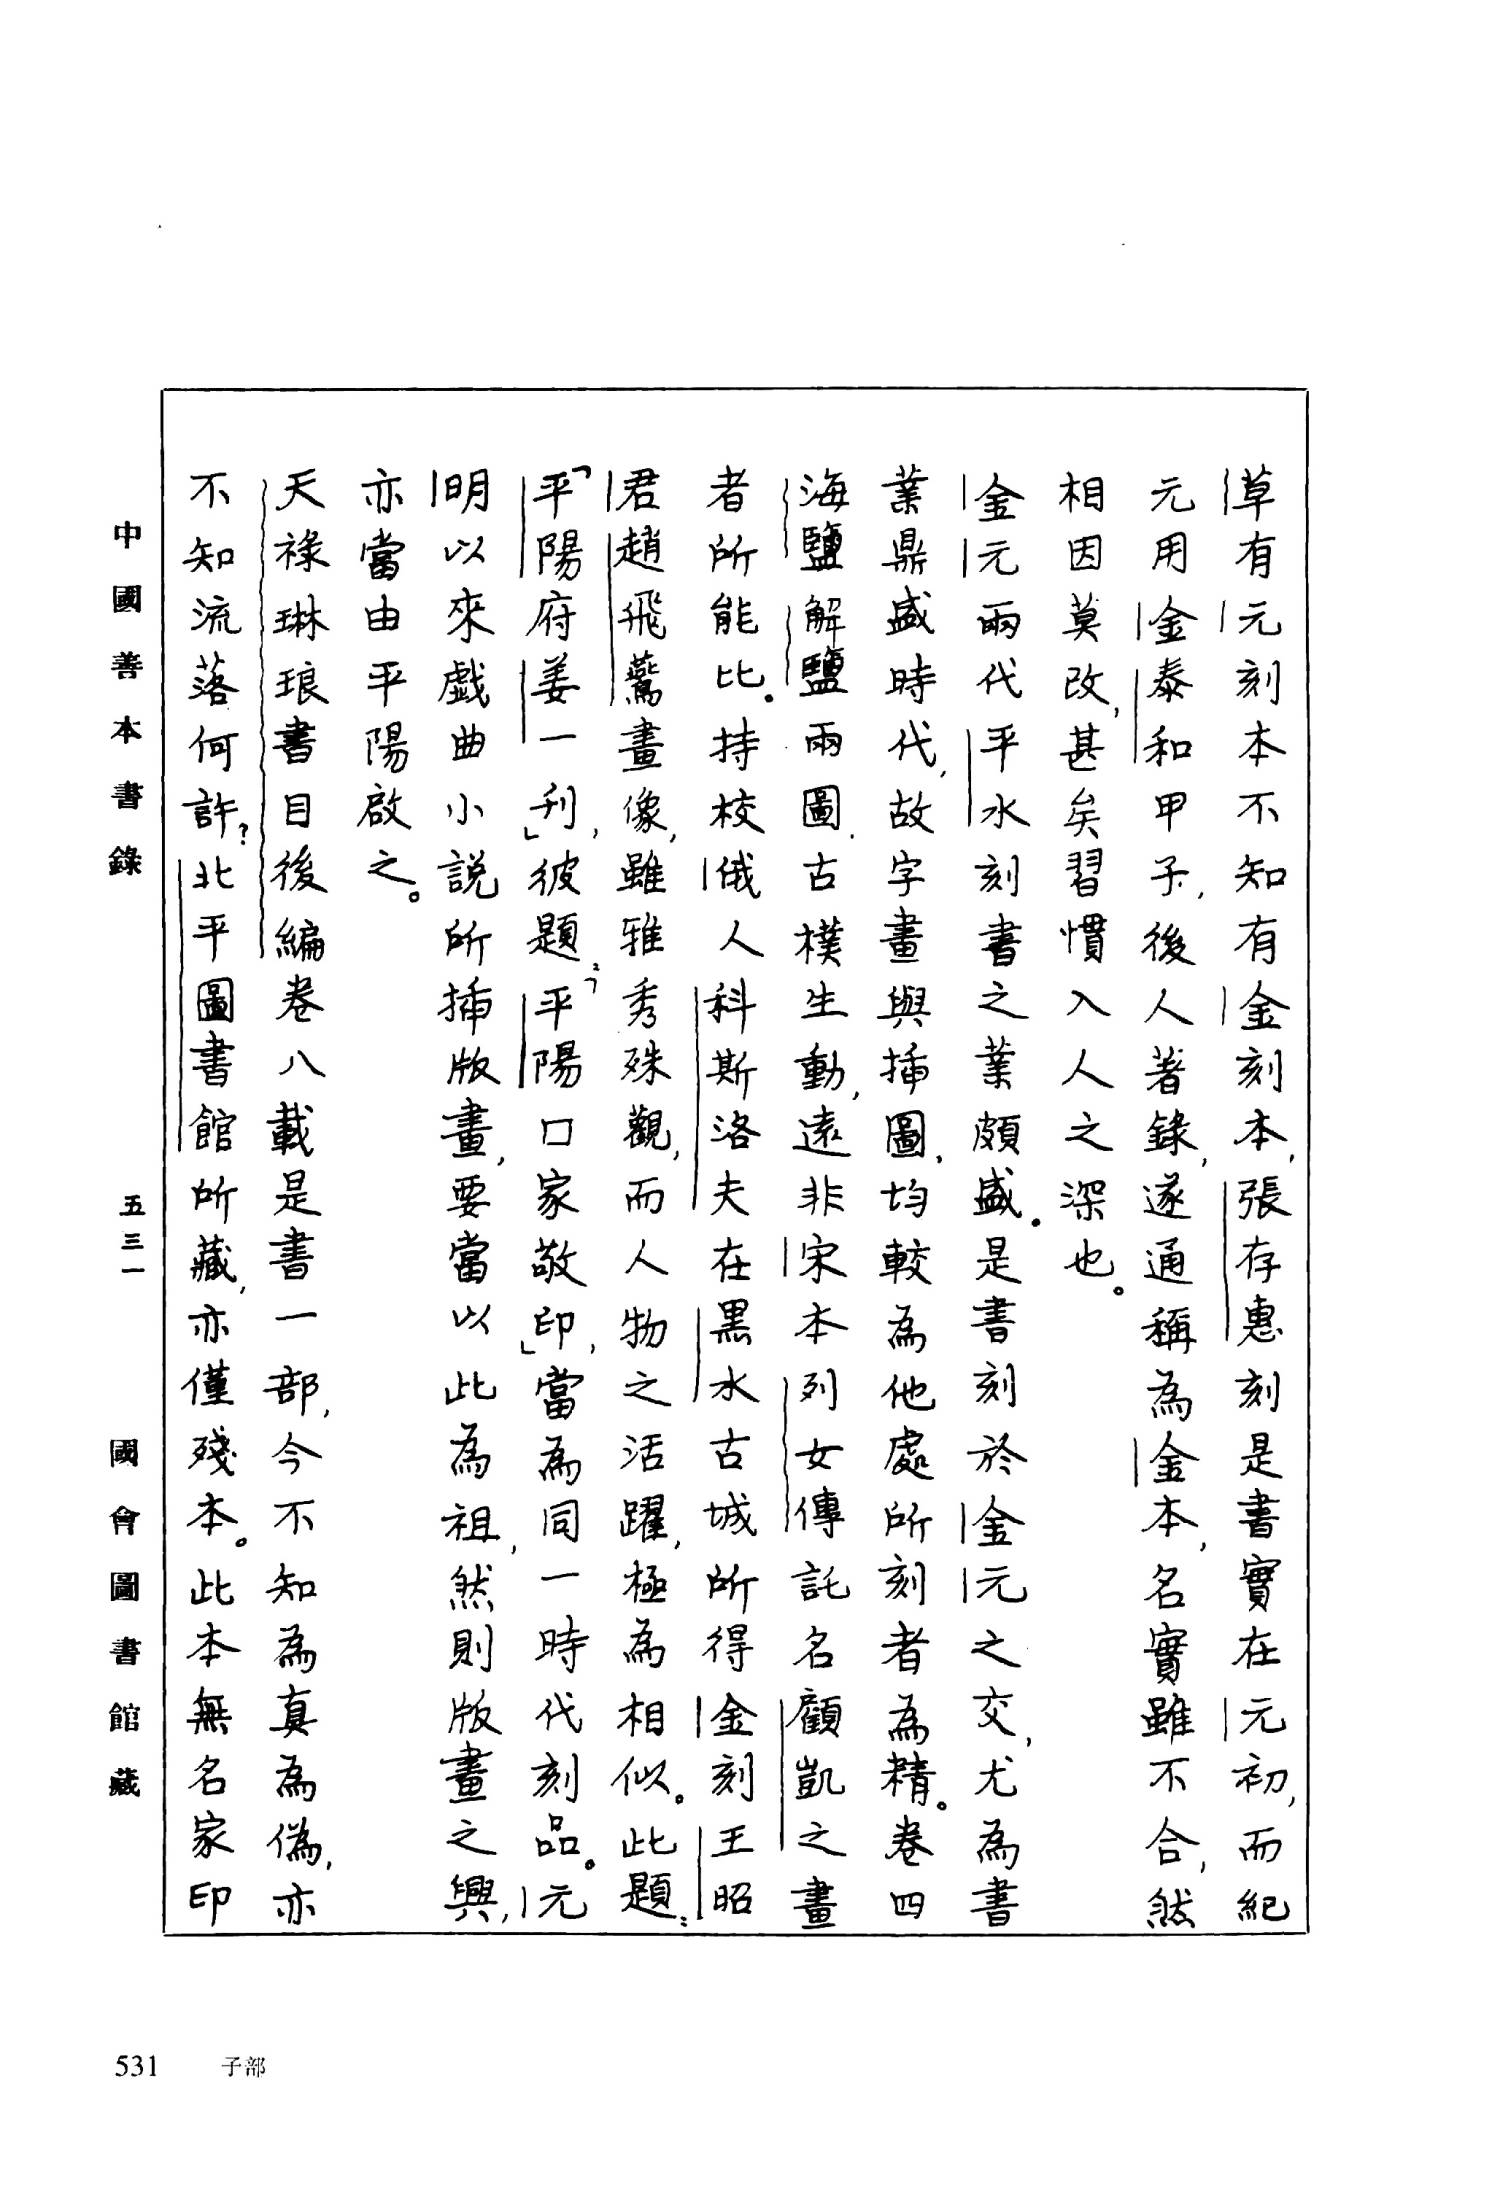 草有元刻本不知有金刻本，張存惠刻是書實在元初，而紀
元用金泰和甲子，後人著錄，遂通稱為金本，名實雖不合，然
相因莫改，甚矣習慣入人之深也。
金元兩代平水刻書之業頗盛。是書刻於金元之交，尤為書
業鼎盛時代，故字畫與插圖，均較為他處所刻者為精。卷四
海鹽解鹽兩圖，古樸生動，遠非宋本列女傳託名顧凱之畫
者所能比。持校俄人科斯洛夫在黑水古城所得金刻王昭
君趙飛鷰畫像，雖雅秀殊觀，而人物之活躍，極為相似。此題：
「平陽府姜一刋」，彼題：「平陽口家敬印」，當為同一時代刻品。元
明以來戲曲小說所插版畫，要當以此為祖，然則版畫之興，
亦當由平陽啟之。
天祿琳琅書目後編卷八載是書一部，今不知為真為偽，亦
不知流落何許？北平圖書館所藏，亦僅殘本。此本無名家印
中國善本書錄
五三一
國會圖書館藏
531 子部